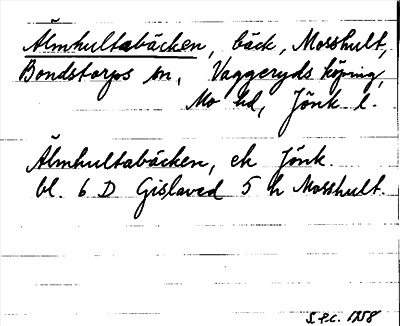 Älmhultabäcken, bäck, Mosshult,
Bondstorps sn, Vaggeryds köping,
Mo hd, Jönk l.
Älmhultabäcken, ek Jönk.
bl. 6 D Gislaved 5 h Mosshult.
1958